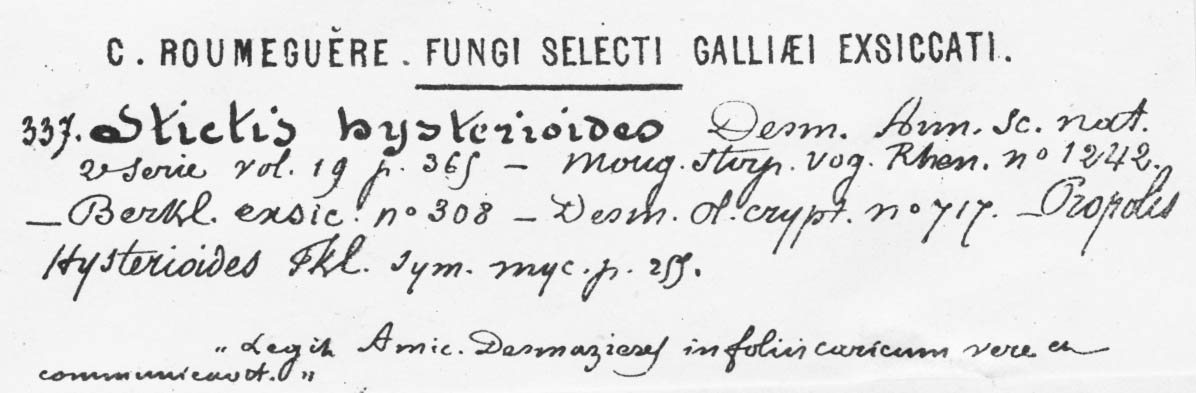 C. ROUMEGUĚRE. FUNGI SELECTI GALLIÆI EXSICCATI.
337. Stictis hysterioides Desm. Ann. Sc. nat.
2e Serie vol. 19 p. 365 – Moug. Stirp. Vog. Rhen. no 1242.
– Berkl. exsic. no 308 – Desm. pl. crypt. no 717. – Propolis
Hysterioides Fkl. Sym. myc. p. 255.
„ Legit Amic. Desmazieres in foliis caricum vere et
communicavit. "